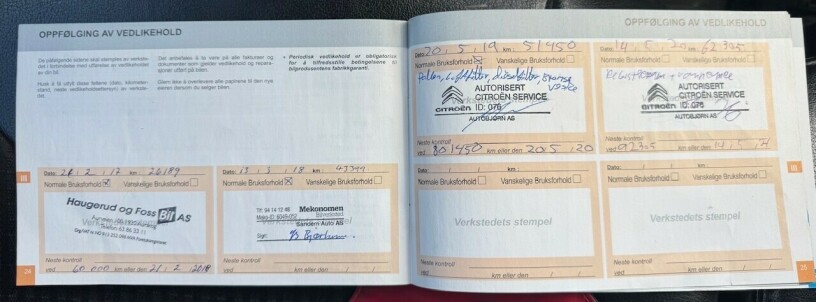 OPPFØLGING AV VEDLIKEHOLD
De påfølgende sidene skal stemples av verkste-
det i forbindelse med utførelse av vedlikeholdet
av din bil.
Husk å få utfylt disse feltene (dato, kilometer-
stand, neste vedlikeholdsettersyn) av verkste-
det.
Det anbefales å ta vare på alle fakturaer og
dokumenter som gjelder vedlikehold og repara-
sjoner utført på bilen.
Glem ikke å overlevere alle papirene til den nye
eieren dersom du selger bilen.
• Periodisk vedlikehold er obligatorisk
for å tilfredsstille betingelsene til
bilprodusentens fabrikkgaranti.
Dato: 21 . 2 . 17 km : 26189
Normale Bruksforhold Vanskelige Bruksforhold
Haugerud og Foss Bil AS
Neste kontroll
ved 60 000 km eller den 21 / 2 2019
24
III
Normale Bruksforhold Vanskelige Bruksforhold
Mekonomen
Bilverksted
Sandem Auto AS
Sign:
Neste kontroll
ved km eller den / /
OPPFØLGING AV VEDLIKEHOLD
Dato: 20 . 5 . 19 km : 51450
Normale Bruksforhold Vanskelige Bruksforhold
AUTORISERT
CITROËN SERVICE
CITROËN ID: 076
AUTOBJØRN AS
Neste kontroll
ved 801450 km eller den 20 / 5 / 20
Dato: 14 . 5 . 20 km : 62305
Normale Bruksforhold Vanskelige Bruksforhold
AUTORISERT
CITROËN SERVICE
CITROËN ID: 076
AUTOBJØRN AS
Neste kontroll
ved 92305 km eller den 14 . 5 . 21
Dato: / / km :
Normale Bruksforhold Vanskelige Bruksforhold
Verkstedets stempel
Neste kontroll
ved km eller den / /
Dato: / / km :
Normale Bruksforhold Vanskelige Bruksforhold
Verkstedets stempel
Neste kontroll
ved km eller den / /
III
25